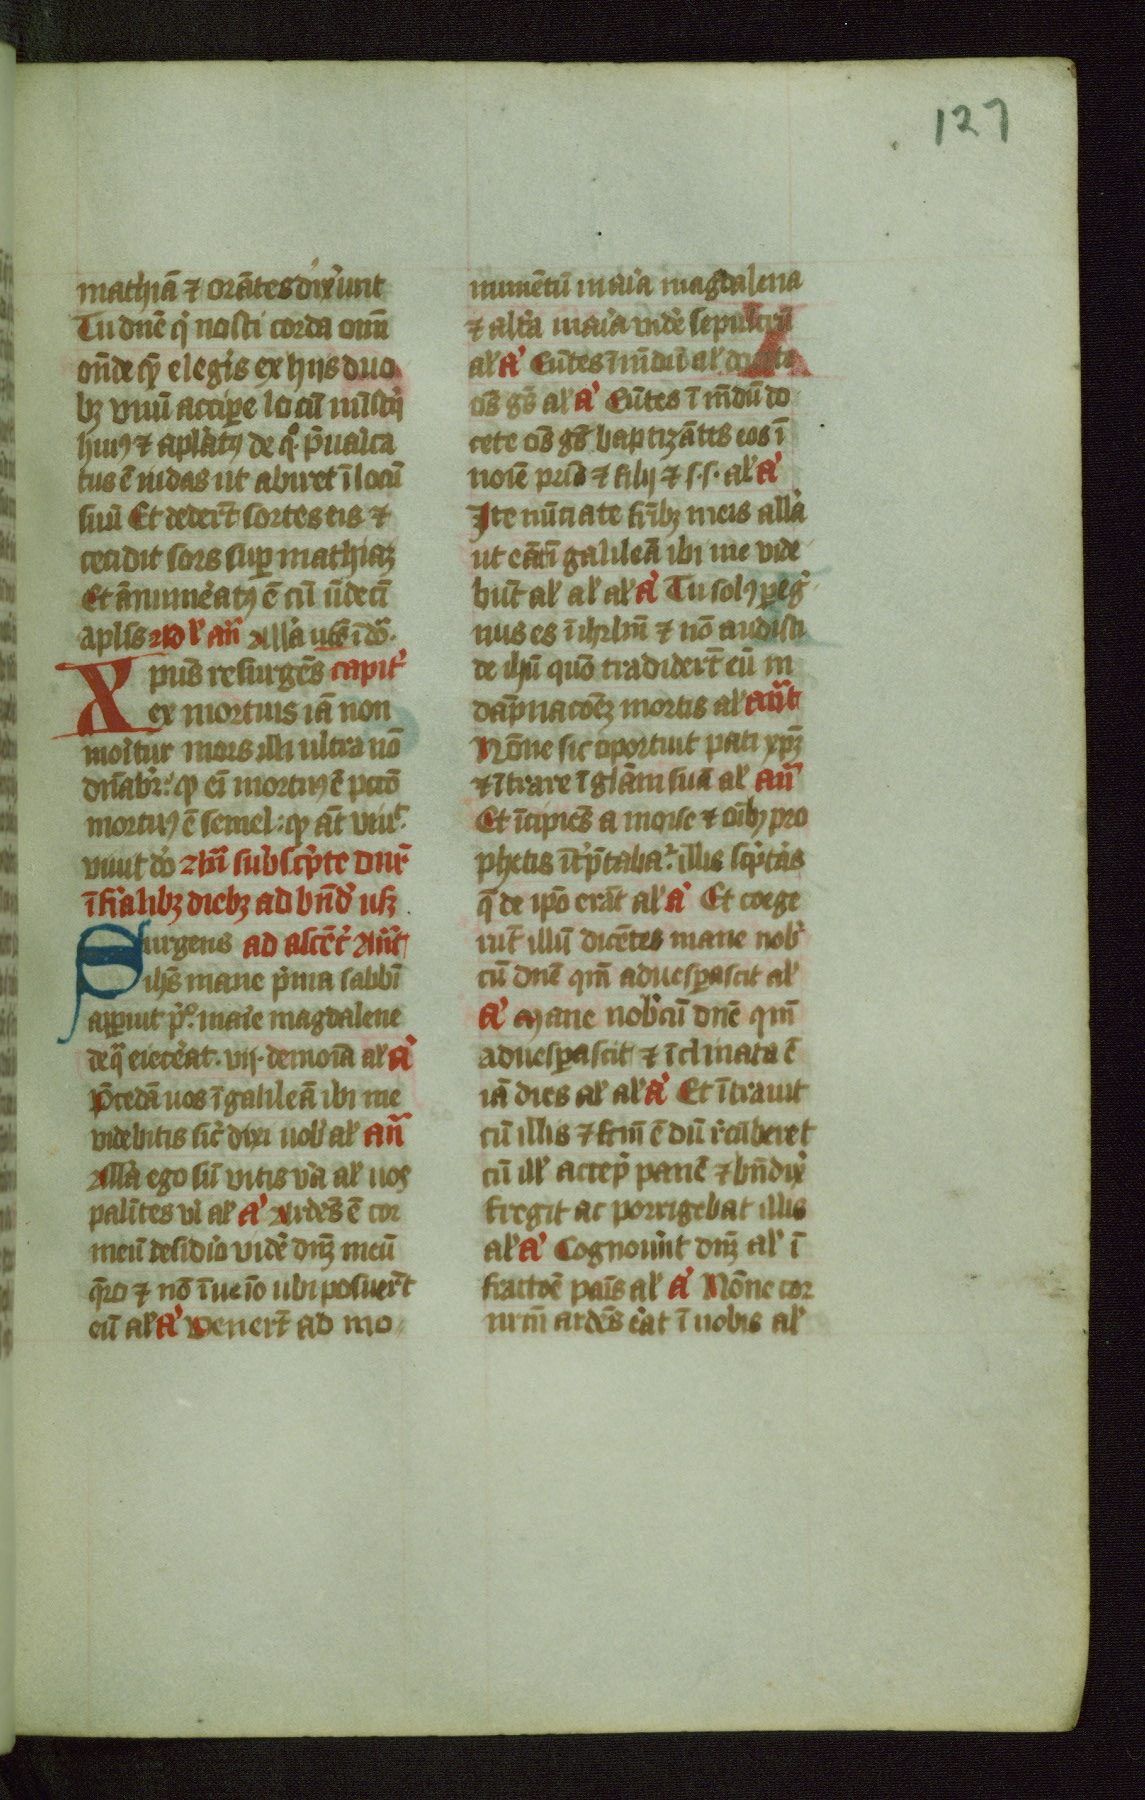 127
mathiā ⁊ orātes dix̄unt
Tu dnē q̇ nosti corda om̄ū
on̄de q̄ȝ elegis ex hijs duo
bȝ vnū accipe locū ministȝ
huiꝰ ⁊ aplātꝰ de q̊ p̄uaica
tus ē iudas ut abiret ī locū
suū Et deder̄t sortes eis ⁊
cecidit sors suꝑ mathiaȝ
Et ānumeatꝰ ē cū ūdecī
aplis Ad l' an̄ All'a usqȝ ī dō.
Xpus resurgēs capit'
ex mortuis iā non
moritur mors illi ultra nō
dn̄abr̄: qȝ eī mortuꝰ ē pccō
mortuꝰ ē semel: qȝ āt viuit
viuit dō Añ subscp̄te dn̄r
ī fialibȝ diebȝ ad bn̄d' usqȝ
Surgens ad ascēt' Añt
ihs mane p̄ma sabbī
apꝑuit p̄o: marie magdalene
de q̄ eiecēat .vij. demoīa al' a'
P̄cedā uos ī galileā ibi me
videbitis sic' dixi uob' al' an̄
All'a ego sū vitis v'a al' uos
palītes v'i al' a' Ardēs ē cor
meū desidio vidē dn̄ȝ meū
q̄ro ⁊ nō īueīo ubi posuer̄t
eū al' a' Vener̄t ad mo
numētū maīa magdalena
⁊ alt'a maīa videˀ sepulcrū
al' a' Eūtes ī mn̄dū al' docete
oēs gēs al' a' Eūtes ī mn̄dū do
cete oēs gēs baptizātes eos ī
noīe pris ⁊ filij ⁊ s.s. al' a'
Ite nūciate frībȝ meis all'a
ut eāt ī galileā ibi me vide
būt al' al' al' a' Tu solꝰ ꝑeg'
nus es ī ihrlm̄ ⁊ nō audisti
de ihū quō tradider̄t eū in
dāpnacōeȝ mortis al' añt
Nōne sic oportuit pati xpȝ
⁊ ītrare ī gl'am suā al' añ
Et īcipiēs a moyse ⁊ oībȝ pro
phetis īt'p̄taba.ͬ illis sc'pt'as
q̄ de ipō erāt al' a' Et coege
rūt illū dicētes mane nob'
cū dnē qm̄ aduesꝑascit al'
a' Mane nob'cū dnē qm̄
aduesꝑascit ⁊ īclinata ē
iā dies al' al' a' Et ītrauit
cū illis ⁊ fcm̄ ē dū r'cūberet
cū ill' accep̄ panē ⁊ bn̄dix'
fregit ac porrigebat illis
al' a' Cognouīt dn̄ȝ al' ī
fractōē paīs al' a' Nōne cor
nrm̄ ardēs eāt ī nobis al'